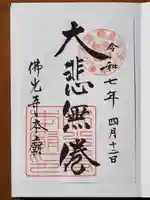 令和七年 四月十二日
大悲無倦
佛光寺本廟